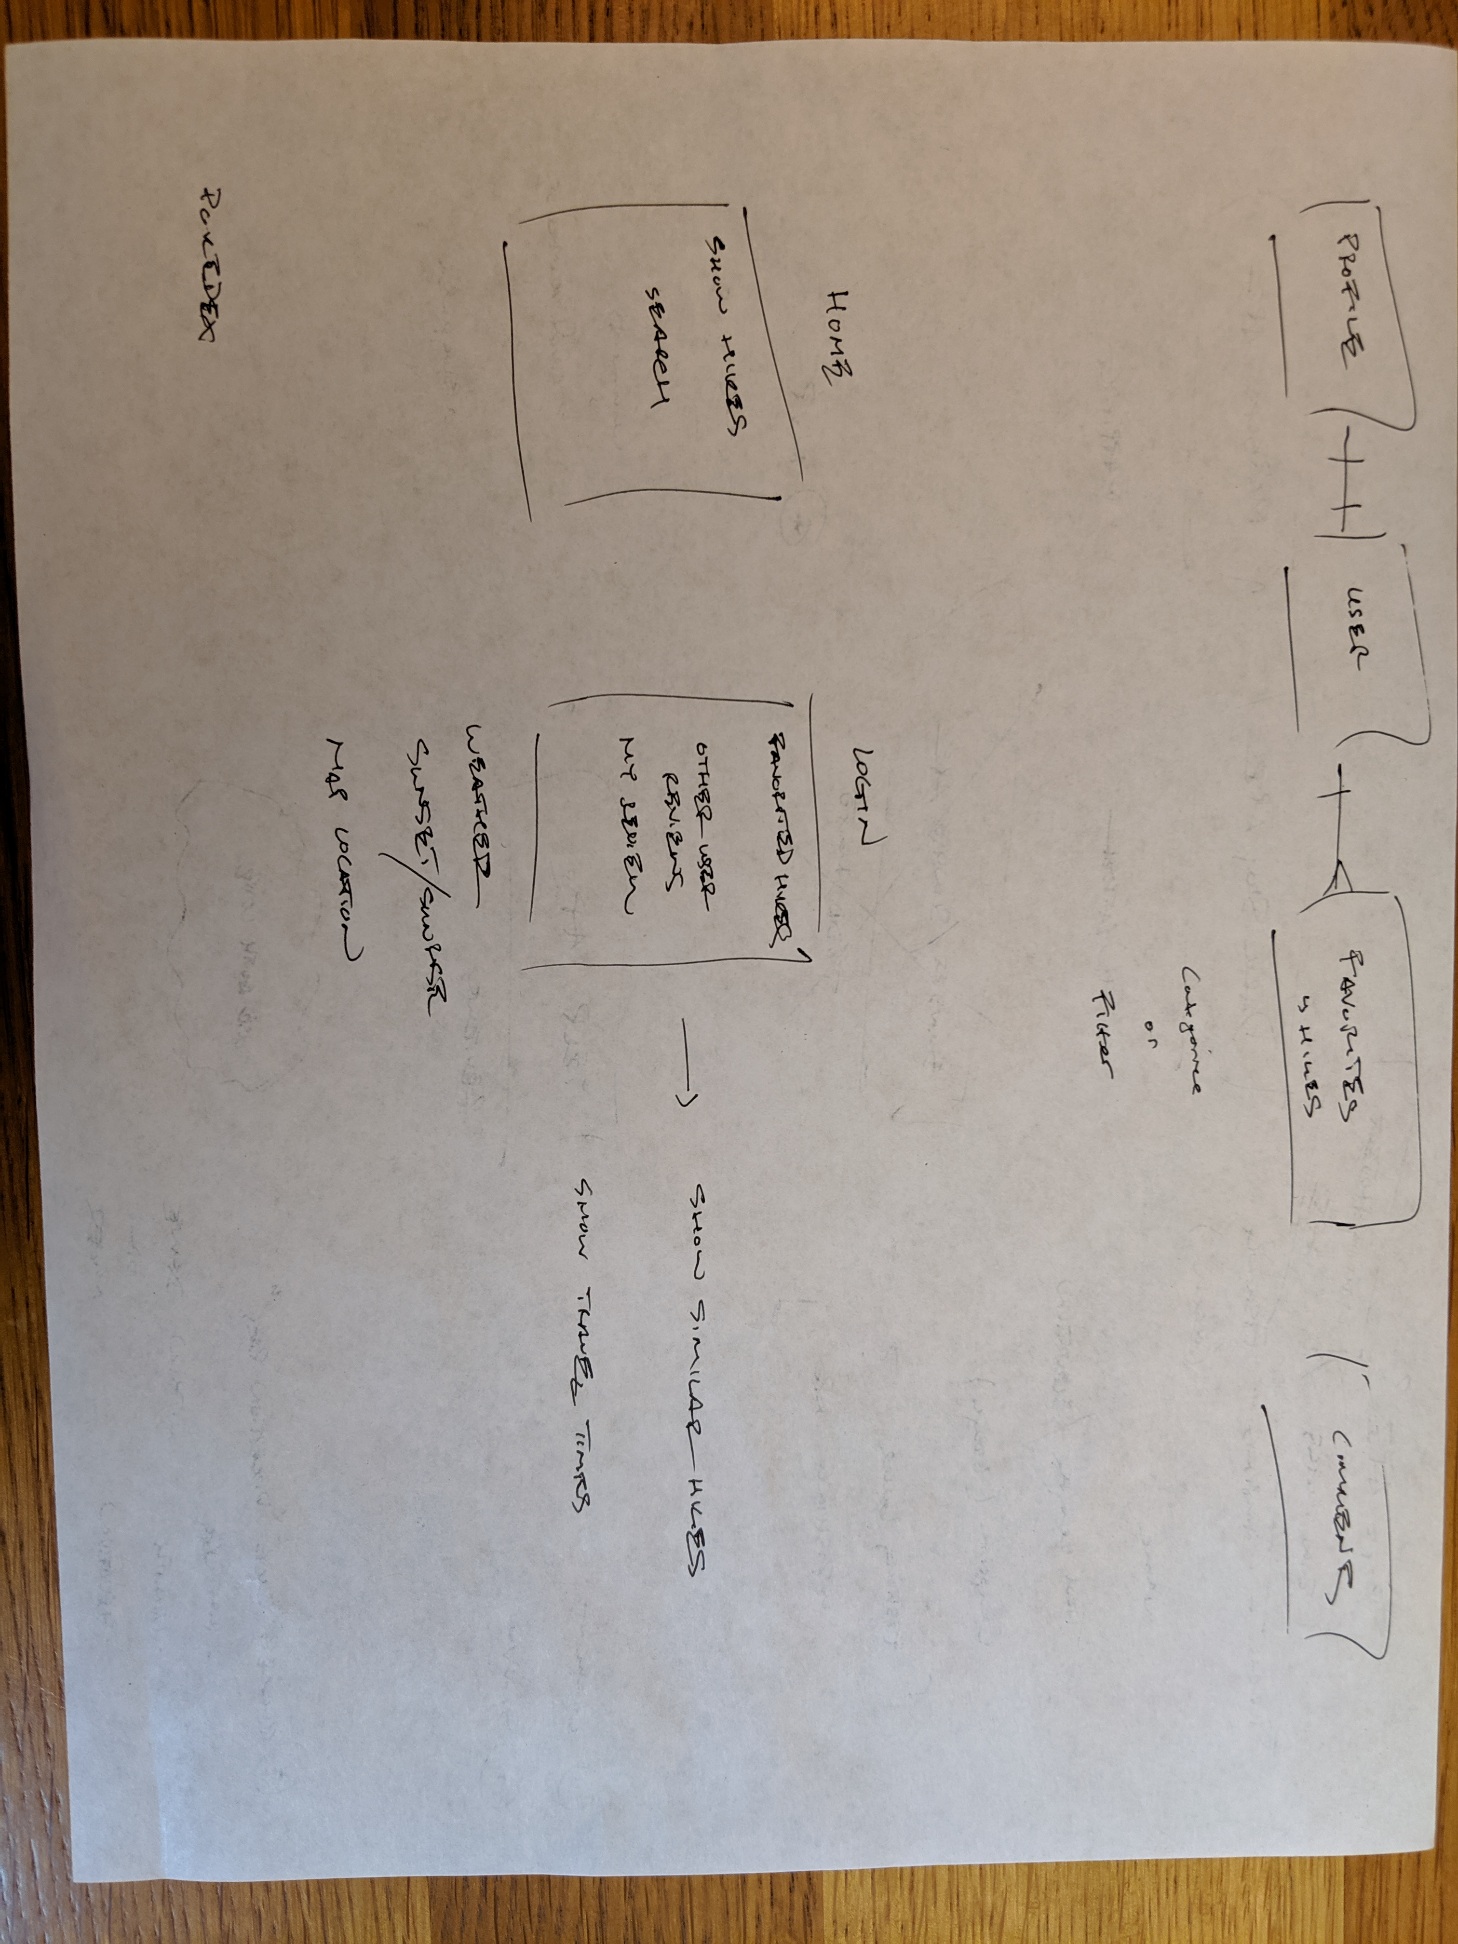 PROFILE
USER
FAVORITES
HIKES
COMMENTS
Categorize
or
Filter
HOME
LOGIN
SHOW HIKES
SEARCH
FAVORITED HIKES
OTHER USER
REVIEWS
MY REVIEW
SHOW SIMILAR HIKES
SHOW TRAVEL TIMES
WEATHER
SUNSET/SUNRISE
MAP LOCATION